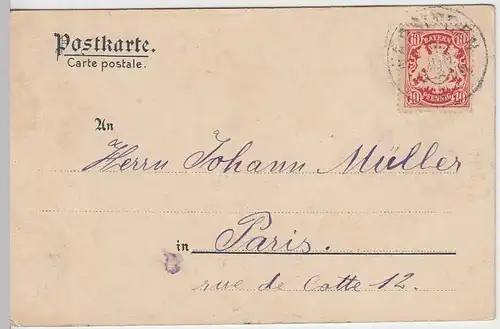 Postkarte.
Carte postale.
10 BAYERN 10
10 PFENNIG 10
An
Herrn Johann Müller
in Paris.
rue de Cotte 12.